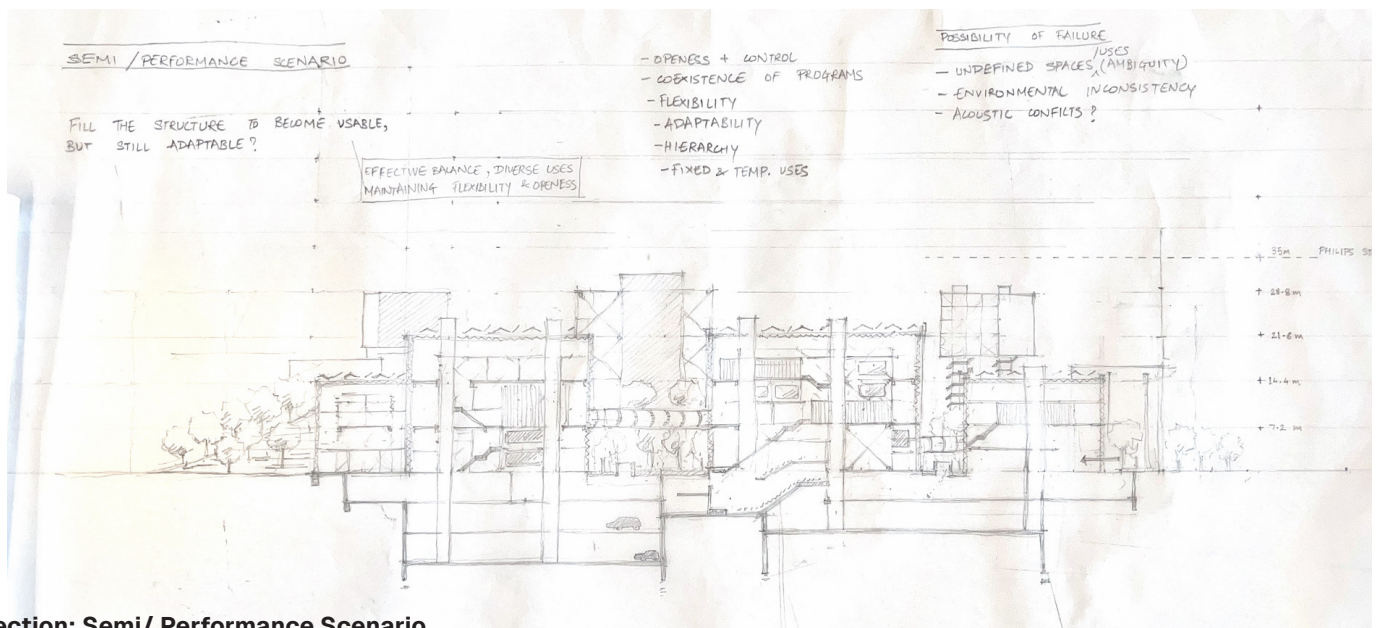 SEMI / PERFORMANCE SCENARIO
FILL THE STRUCTURE TO BECOME USABLE,
BUT STILL ADAPTABLE?
EFFECTIVE BALANCE, DIVERSE USES
MAINTAINING FLEXIBILITY & OPENESS
- OPENESS + CONTROL
- COEXISTENCE OF PROGRAMS
- FLEXIBILITY
- ADAPTABILITY
- HIERARCHY
- FIXED & TEMP. USES
POSSIBILITY OF FAILURE
- UNDEFINED SPACES /USES (AMBIGUITY)
- ENVIRONMENTAL INCONSISTENCY
- ACOUSTIC CONFICTS?
35m PHILIPS
+ 28.8 m
+ 21.6 m
+ 14.4 m
+ 7.2 m
ection: Semi/ Performance Scenario